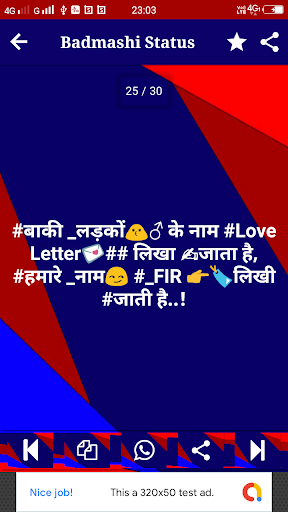 4G G 23:03 VoLTE 4G
Badmashi Status
25 / 30
#बाकी _लड़कों🙆♂ के नाम #Love
Letter💌## लिखा ✍जाता है,
#हमारे _नाम😏 #_FIR 👉🏷लिखी
#जाती है..!
Nice job! This a 320x50 test ad.